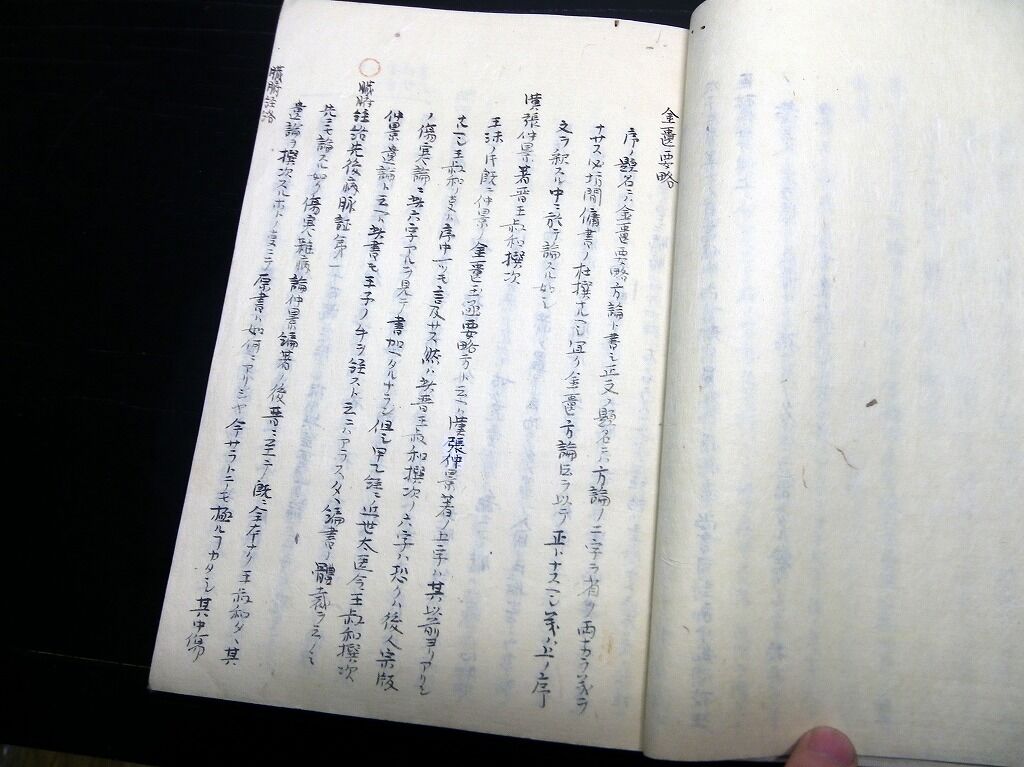 金匱要略
序ノ題名ニハ金匱要略方論ト書シ正文ノ題名ニハ方論ノ二字ヲ省ク両ナカラ義ヲ
ナサス必坊間傭書ノ杜撰ナルヘシ宜ク金匱方論ヲ以テ正トナスヘシ義ハ上ノ序
文ヲ釈スル中ニ於テ論スル如シ
漢張仲景著晋王叔和撰次
王洙ノ時既ニ仲景ノ金匱玉函要略方ト云ヘハ漢張仲景著ノ五字ハ其以前ヨリアリシ
ナルヘシ王叔和ノ序中一ツモ言及サス然ハ此晋王叔和撰次ノ六字ハ恐クハ後人宋版
ノ傷寒論ニ此六字アルヲ見テ書加ヘタルナラン但シ甲乙経ニ近世太医令王叔和撰次
仲景遺論ト云ヘハ此書モ王子ノ手ヲ経スト云ニハアラス只編書ノ體裁ヲ云ノミ
臓腑経絡先後病脈証第一
先ニモ論スル如ク傷寒雑病論仲景編著ノ後晋ニ至テ既ニ全本ナク王叔和タヽ其
遺論ヲ撰次スルホトノ事ニテ原書ハ如何ニアリシヤ今サラトニモ極ルヿカタシ其中傷
臓腑経絡